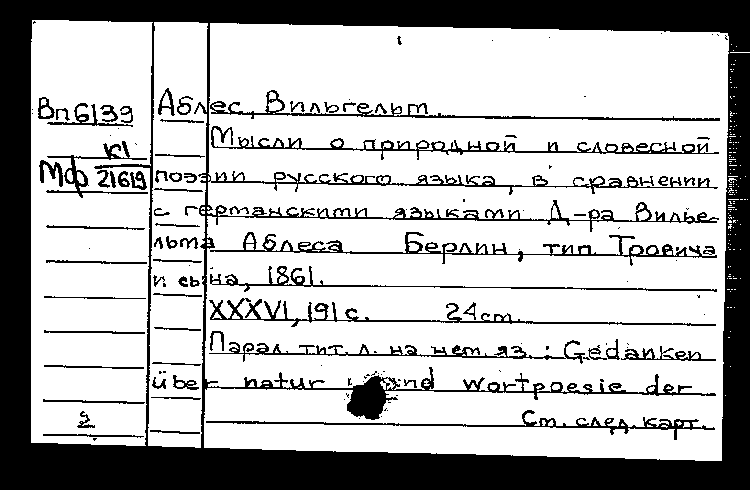 Вп6139 Аблес, Вильгельм.
Мысли о природной и словесной
К1
Мф 21619 поэзии русского языка, в сравнении
с германскими языками Д-ра Вилье-
льма Аблеса Берлин, тип. Тровича
и сына, 1861.
XXXVI, 191 с. 24 cm.
Парал. тит. л. на нем. яз.: Gedanken
über natur und wortpoesie der
2 См. след. карт.